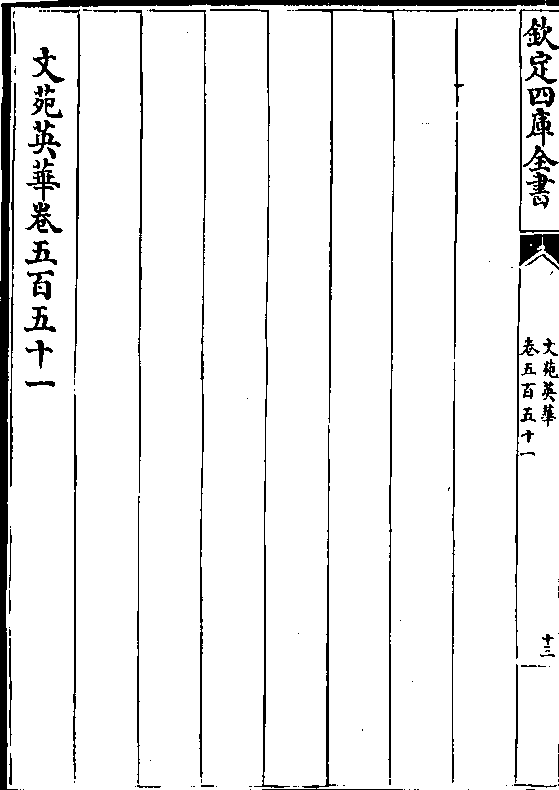 欽定四庫全書
文苑英華
卷五百五十一
十三
文苑英華卷五百五十一